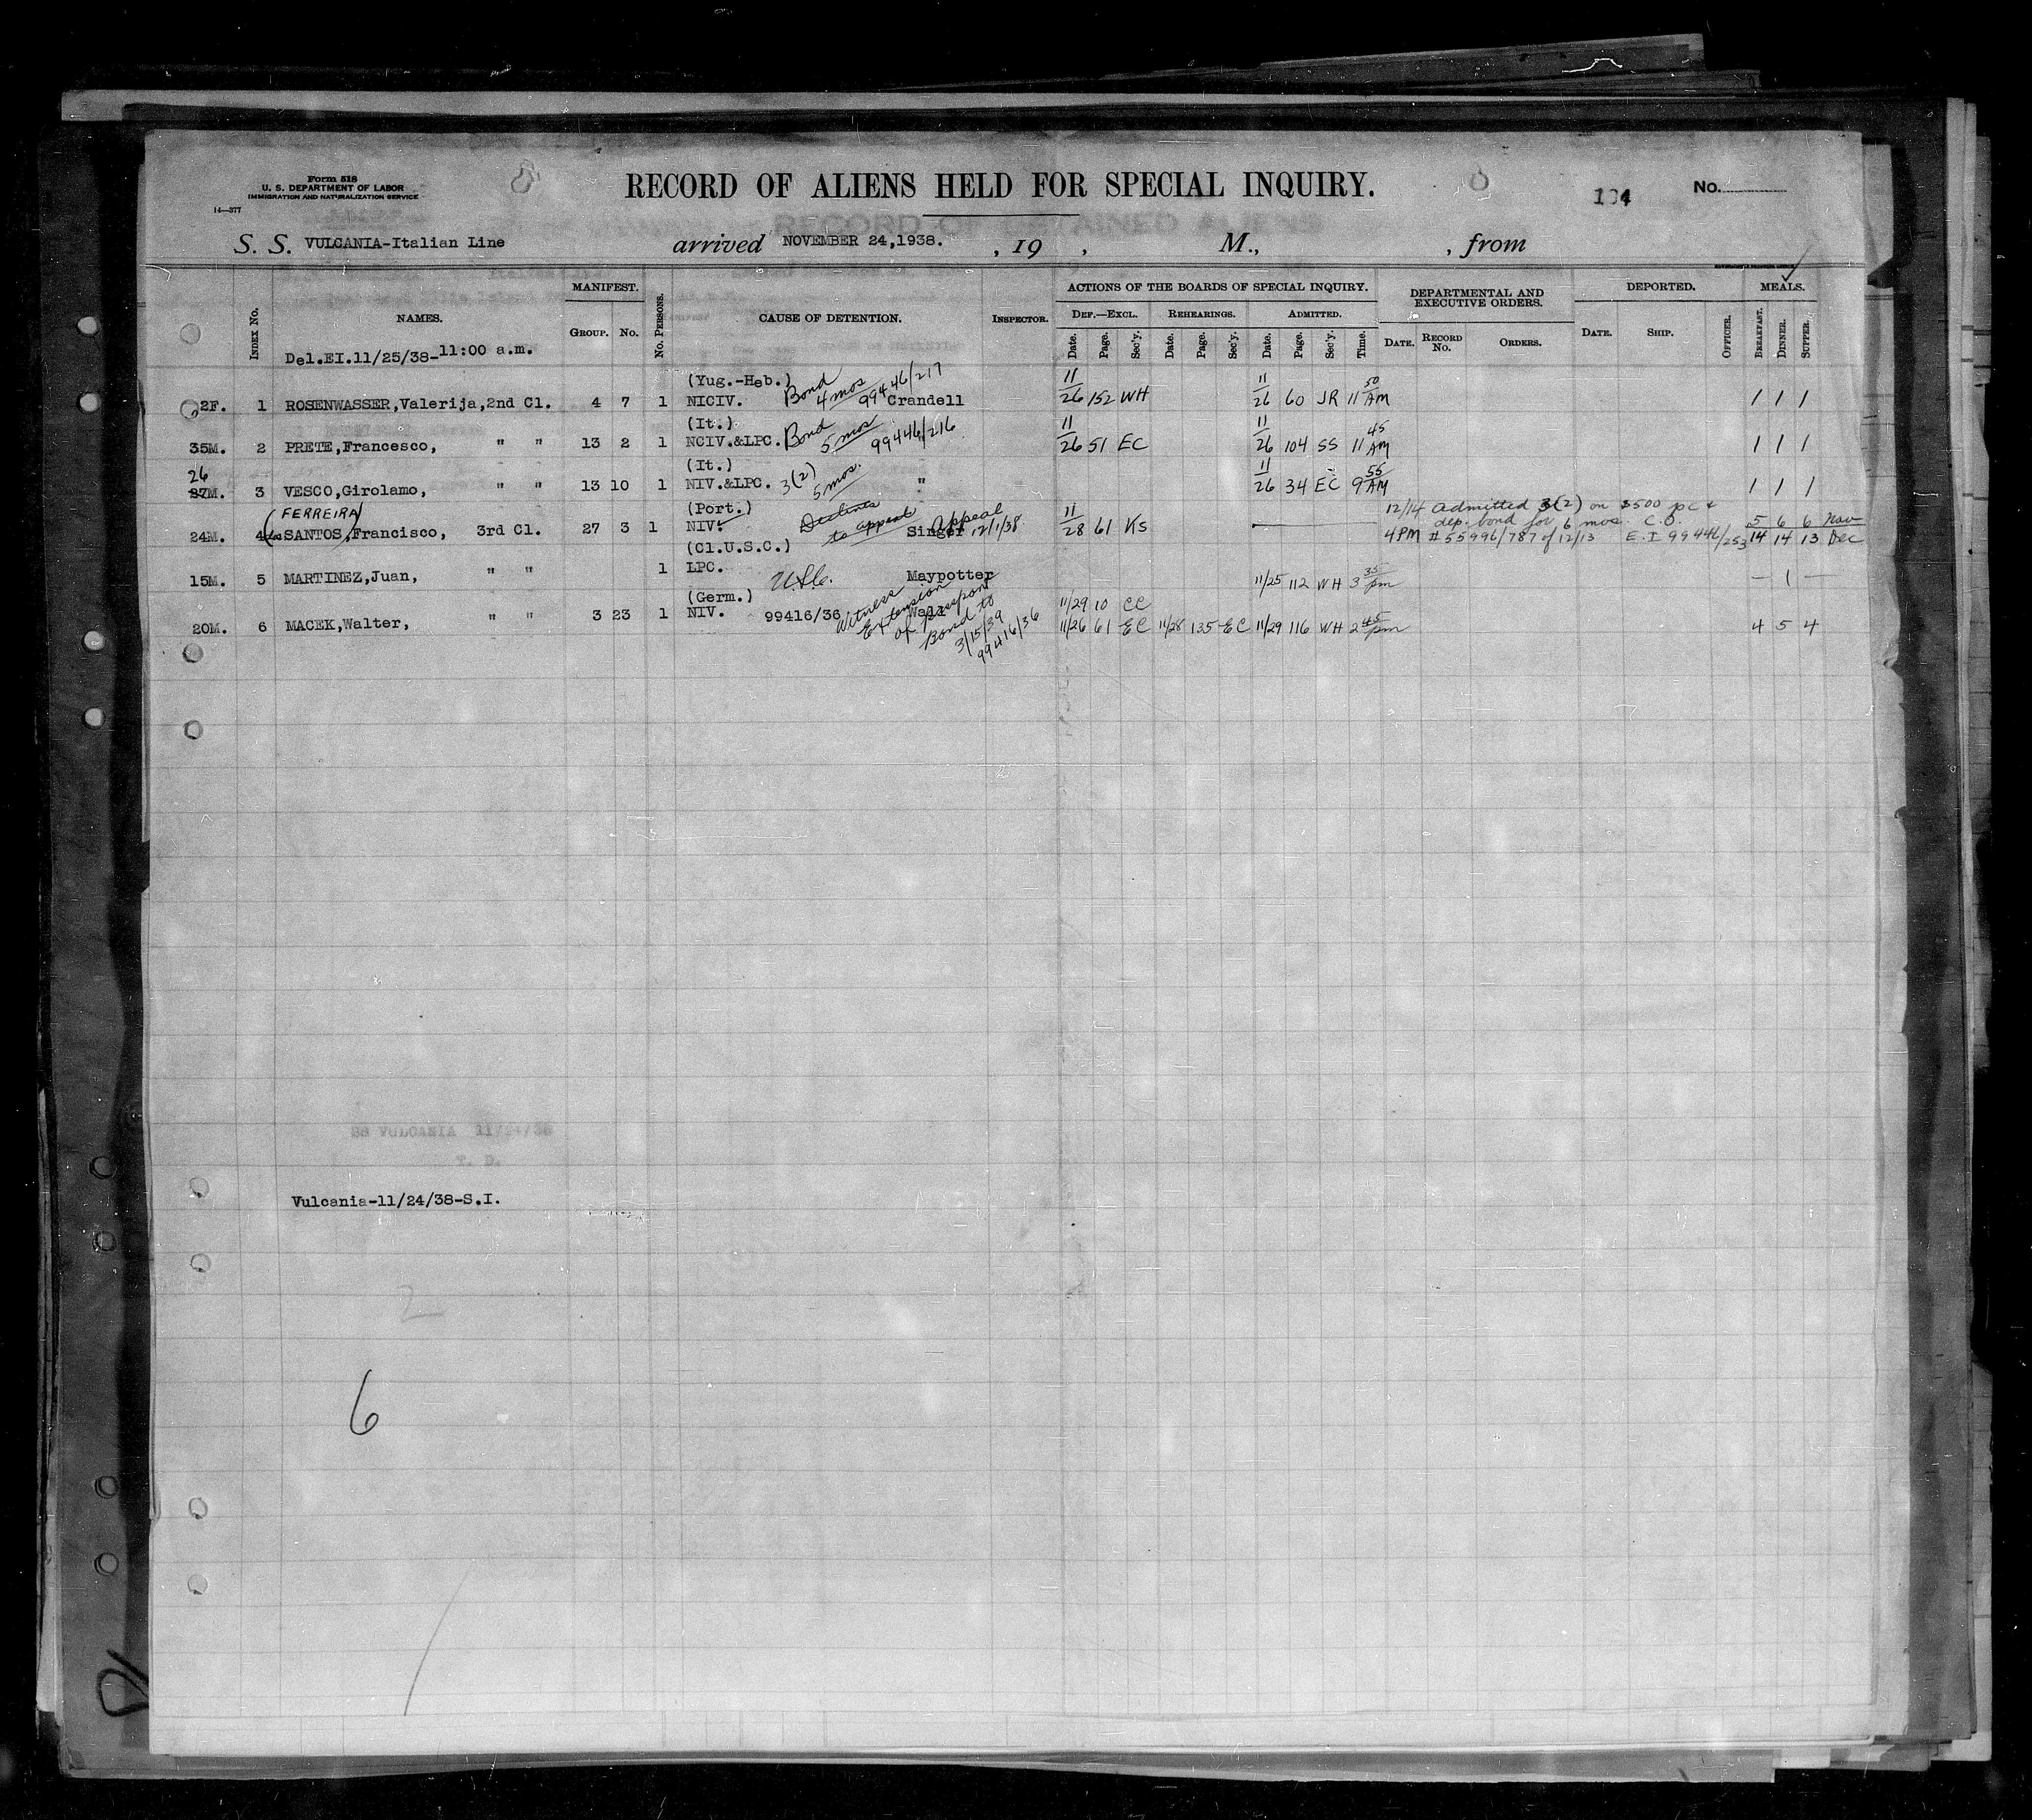 Form 518
U. S. DEPARTMENT OF LABOR
IMMIGRATION AND NATURALIZATION SERVICE
14—377
8
RECORD OF ALIENS HELD FOR SPECIAL INQUIRY.
RECORD OF DETAINED ALIENS
194
No.
S. S. VULCANIA-Italian Line arrived NOVEMBER 24,1938. , 19 , M., , from
INDEX No. NAMES. MANIFEST. GROUP. No. No. PERSONS. CAUSE OF DETENTION. INSPECTOR. ACTIONS OF THE BOARDS OF SPECIAL INQUIRY. DEPARTMENTAL AND EXECUTIVE ORDERS. DEPORTED. MEALS.
DEF.—EXCL. REHEARINGS. ADMITTED.
Date. Page. Sec'y. Date. Page. Sec'y. Date. Page. Sec'y. Time. DATE. RECORD No. ORDERS. DATE. SHIP. OFFICER. BREAKFAST. DINNER. SUPPER.
Del.EI.11/25/38-11:00 a.m.
(Yug.-Heb.) Bond 4 mos 99446/217
2F. 1 ROSENWASSER,Valerija,2nd Cl. 4 7 1 NICIV. Crandell 11/26 152 WH 11/26 60 JR 11 50 AM 1 1 1
(It.) Bond 5 mos 99446/216
35M. 2 PRETE,Francesco, " " 13 2 1 NCIV.&LPC. 11/26 51 EC 11/26 104 SS 11 45 AM 1 1 1
(It.) 3(2) 5 mos.
26
27M. 3 VESCO,Girolamo, " " 13 10 1 NIV.&LPC. " 11/26 34 EC 9 55 AM 1 1 1
(Port.) Declines to appeal Appeal 12/1/38
FERREIRA
24M. 4 SANTOS,Francisco, 3rd Cl. 27 3 1 NIV. Singer 11/28 61 KS
12/14 Admitted 3(2) on $500 pc &
dep. bond for 6 mos. C.O. 5 6 6 Nov
4PM #55996/787 of 12/13 E.I 99446/253 14 14 13 Dec
(Cl.U.S.C.)
15M. 5 MARTINEZ,Juan, " " 1 LPC. U.S.C. Maypotter 11/25 112 WH 3 35 pm — 1 —
(Germ.)
20M. 6 MACEK,Walter, " " 3 23 1 NIV. 99416/36 11/29 10 CC
11/26 61 EC 11/28 135 EC 11/29 116 WH 2 45 pm 4 5 4
Witness
Extension
of
Bond to
3/15/39
99416/36
SS VULCANIA 11/24/38
T. D.
Vulcania-11/24/38-S.I.
2
6